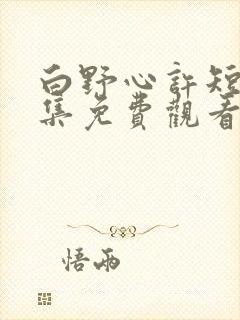 白野心許短
集免費觀看
悟雨